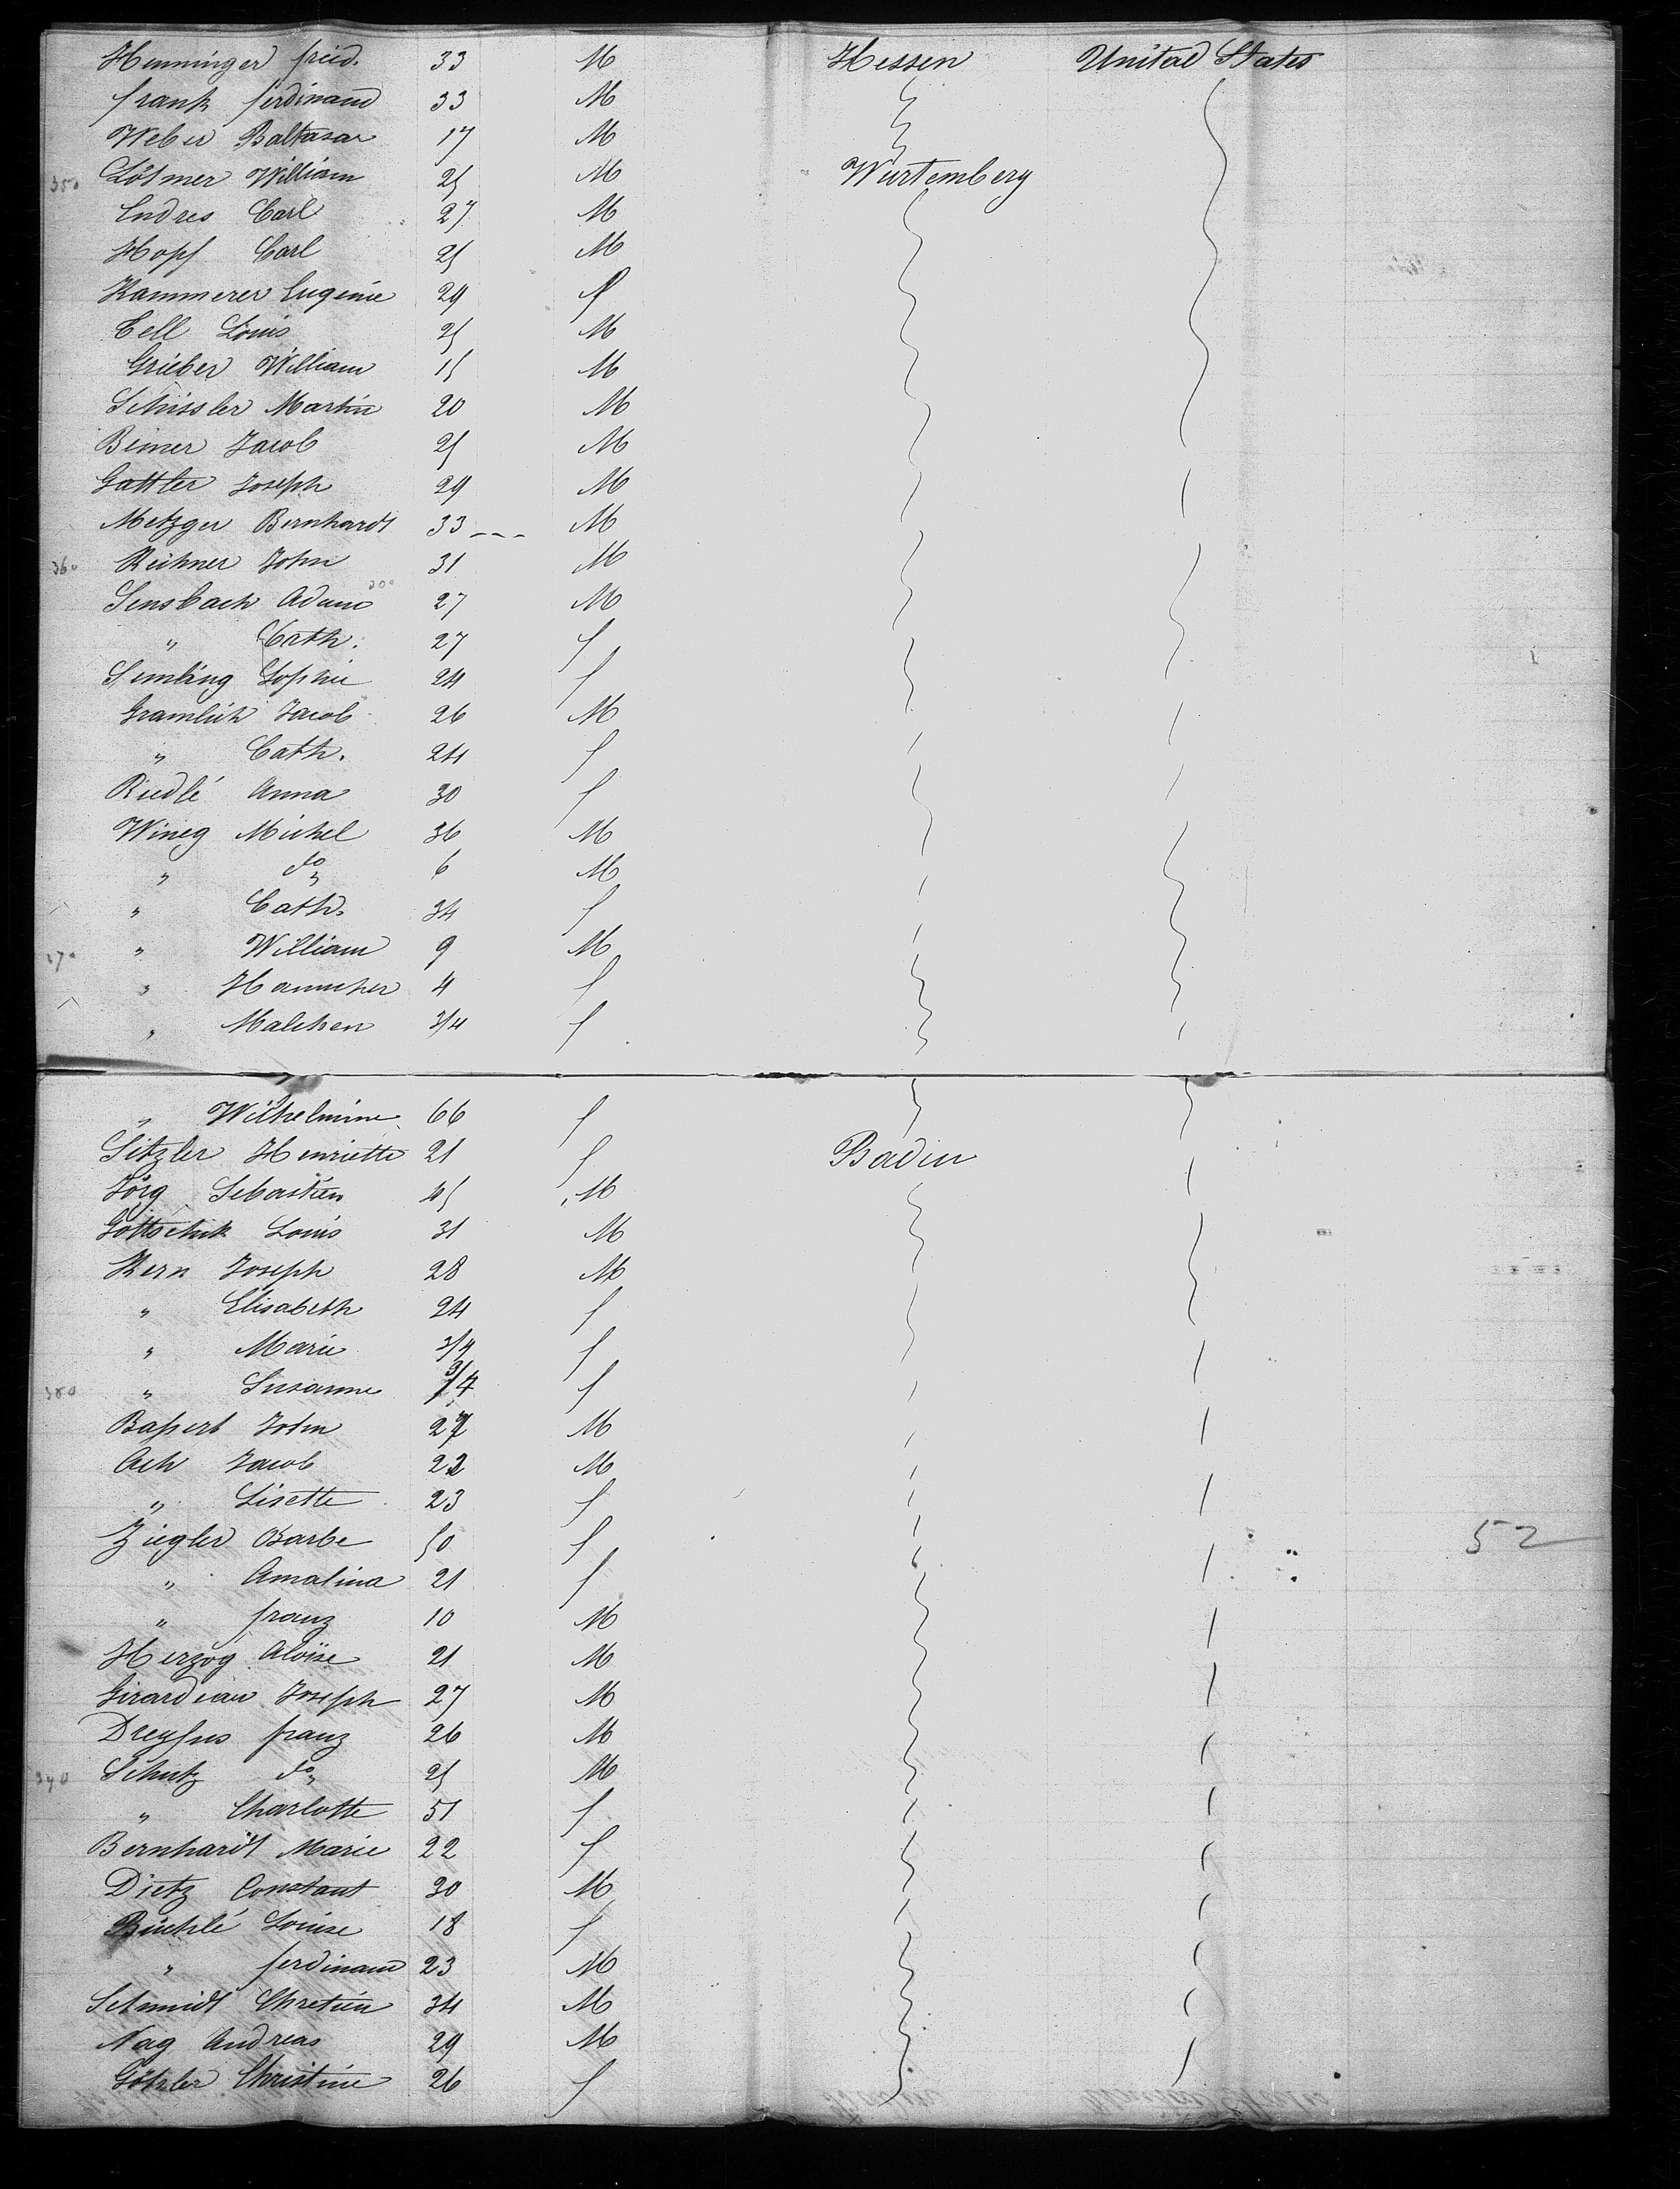 Henninger fried. 33 M Hessen United States
frank ferdinand 33 M
Weber Baltasar 17 M
350 Lösmer William 25 M Wurtemberg
Endres Carl 27 M
Hopf Carl 25 M
Kammerer Eugenie 29 f
Cell Louis 25 M
Grieber William 15 M
Schissler Martin 20 M
Beiner Jacob 25 M
Gattler Joseph 29 M
Metzger Bernhardt 33 --- M
360 Reihner John 31 M
Sensbach Adam 27 M
" Cath. 27 f
Semling Sophie 24 f
Gramlich Jacob 26 M
" Cath. 24 f
Riedlé Anna 30 f
Wineg Michel 36 M
" do 6 M
" Cath. 34 f
370 " William 9 M
" 4 f
" Malchen 3/4 f
" Wilhelmine 66 f
Sitzler Henriette 21 f Baden
Jörg Sebastien 45 M
Gottschik Louis 31 M
Kern Joseph 28 M
" Elisabeth 24 f
" Marie 3/4 f
380 " Susanne f
Bapert John M
Ach Jacob 22 M
" Lisette 23 f
Ziegler Barbe 50 f 52
" Amalina 21 f
" franz 10 M
Herzog Aloïse 21 M
Girardeau Joseph 27 M
Dreyfus franz 26 M
390 Schutz do 25 M
" Charlotte 51 f
Bernhardt Marie 22 f
Dietz Constant 30 M
Büchlé Louise 18 f
" ferdinand 23 M
Schmidt Chretien 34 M
Nag Andreas 29 M
Götzler Christine 26 f